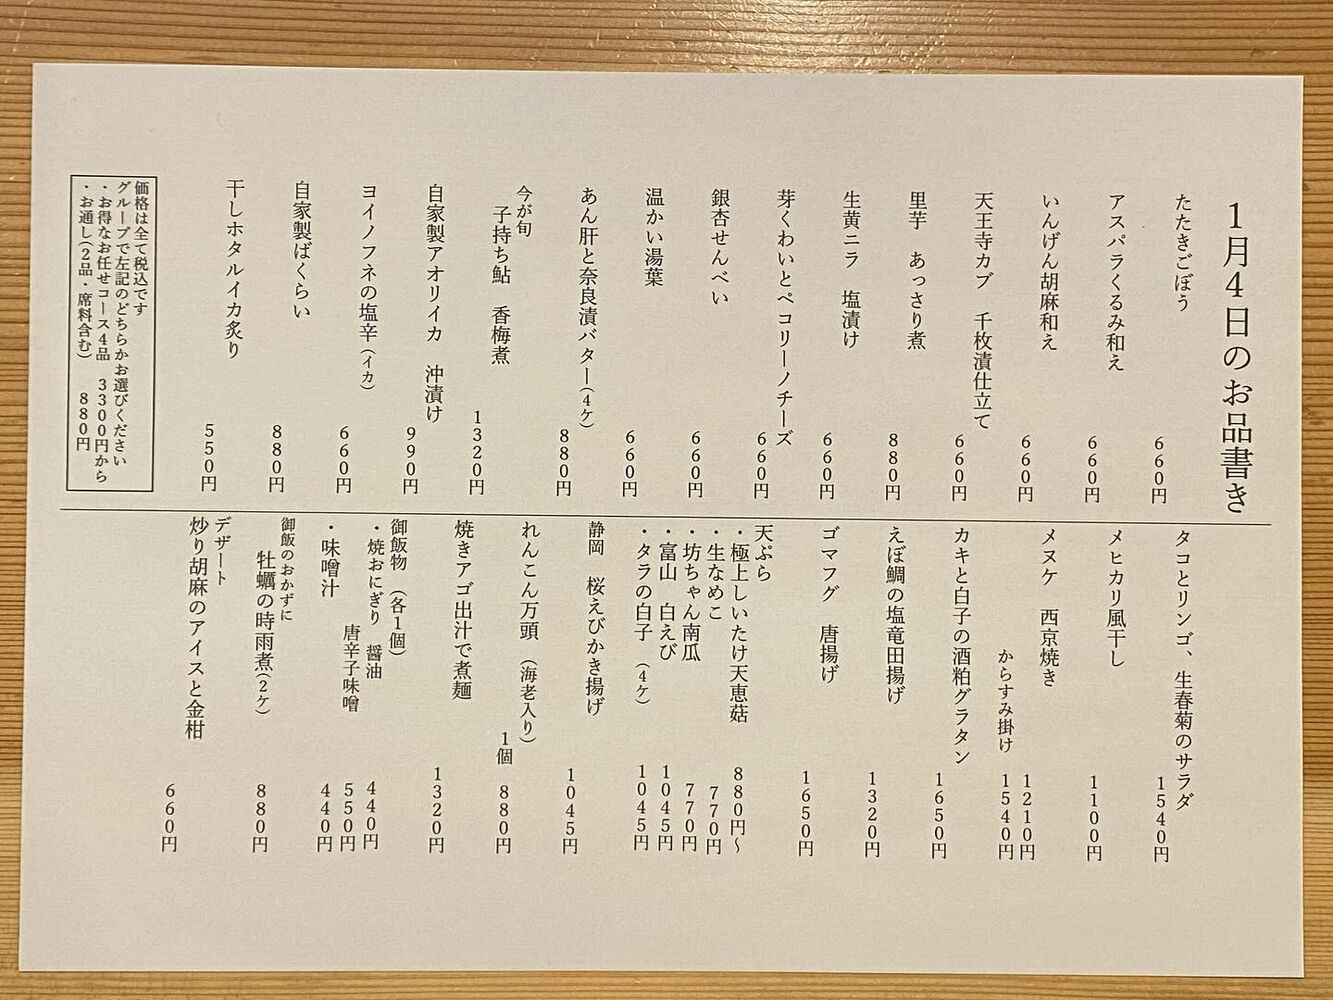 1月4日のお品書き
たたきごぼう 660円
アスパラくるみ和え 660円
いんげん胡麻和え 660円
天王寺カブ 千枚漬仕立て 660円
里芋 あっさり煮 880円
生黄ニラ 塩漬け 660円
芽くわいとペコリーノチーズ 660円
銀杏せんべい 660円
温かい湯葉 660円
あん肝と奈良漬バター(4ケ) 880円
今が旬
子持ち鮎 香梅煮 1320円
自家製アオリイカ 沖漬け 990円
ヨイノフネの塩辛(イカ) 660円
自家製ばくらい 880円
干しホタルイカ炙り 550円
価格は全て税込です
グループで左記のどちらかお選びください
・お得なお任せコース4品 3300円から
・お通し(2品・席料含む) 880円
タコとリンゴ、生春菊のサラダ 1540円
メヒカリ風干し 1100円
メヌケ 西京焼き 1210円
からすみ掛け 1540円
カキと白子の酒粕グラタン 1650円
えぼ鯛の塩竜田揚げ 1320円
ゴマフグ 唐揚げ 1650円
天ぷら
・極上しいたけ天恵菇 880円~
・生なめこ 770円
・坊ちゃん南瓜 770円
・富山 白えび 1045円
・タラの白子 (4ケ) 1045円
静岡 桜えびかき揚げ 1045円
れんこん万頭 (海老入り)
1個 880円
焼きアゴ出汁で煮麺 1320円
御飯物 (各1個)
・焼おにぎり 醤油 440円
唐辛子味噌 550円
・味噌汁 440円
御飯のおかずに
牡蠣の時雨煮(2ケ) 880円
デザート
炒り胡麻のアイスと金柑 660円